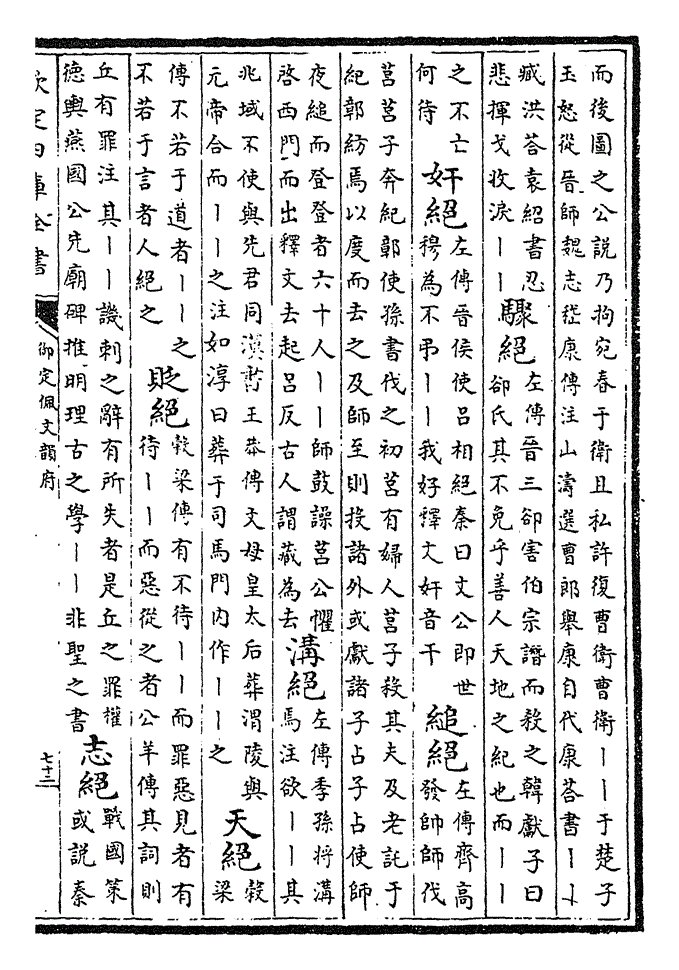 而後圖之公説乃拘宛春于衛且私許復曹衛曹衛丨丨于楚子
玉怒從晉師魏志嵇康傳注山濤選曹郎舉康自代康荅書丨丨
臧洪荅袁紹書忍
悲揮戈收淚丨丨
驟絕
左傳晉三郤害伯宗譖而殺之韓獻子曰
郤氏其不免乎善人天地之紀也而丨丨
之不亡
何待
奸絕
左傳晉侯使吕相絕秦曰文公即世
穆為不弔丨丨我好釋文奸音干
縋絕
左傳齊高
發帥師伐
莒莒子奔紀鄣使孫書伐之初莒有婦人莒子殺其夫及老託于
紀鄣紡焉以度而去之及師至則投諸外或獻諸子占子占使師
夜縋而登登者六十人丨丨師鼓譟莒公懼
啓西門而出釋文去起吕反古人謂藏為去
溝絕
左傳季孫將溝
焉注欲丨丨其
兆域不使與先君同漢書王莽傳文母皇太后葬渭陵與
元帝合而丨丨之注如淳曰葬于司馬門内作丨丨之
天絕
榖
梁
傳不若于道者丨丨之
不若于言者人絕之
貶絕
榖梁傳有不待丨丨而罪惡見者有
待丨丨而惡從之者公羊傳其詞則
丘有罪注其丨丨譏刺之辭有所失者是丘之罪權
德輿燕國公先廟碑推明理古之學丨丨非聖之書
志絕
戰國策
或説秦
欽定四庫全書
御定佩文韻府
七十二